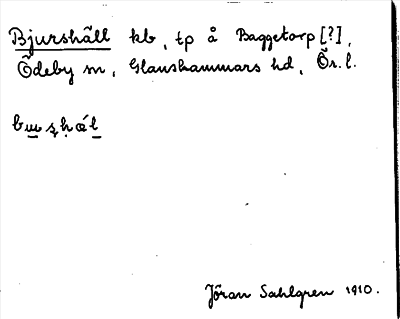 Bjurshäll kb, tp å Baggetorp [?],
Ödeby sn, Glanshammars hd, Ör. l.
Jöran Sahlgren 1910.